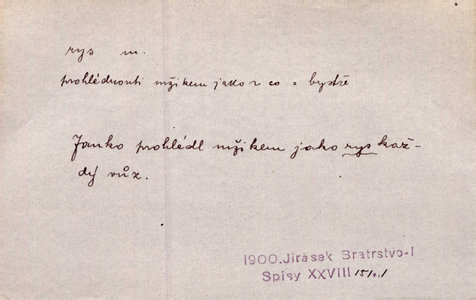 rys m.
prohlédnouti mžikem jako r co : bystře
Janko prohlédl mžikem jako rys kaž-
dý vůz.
1900. Jirásek Bratrstvo-I
Spisy XXVIII